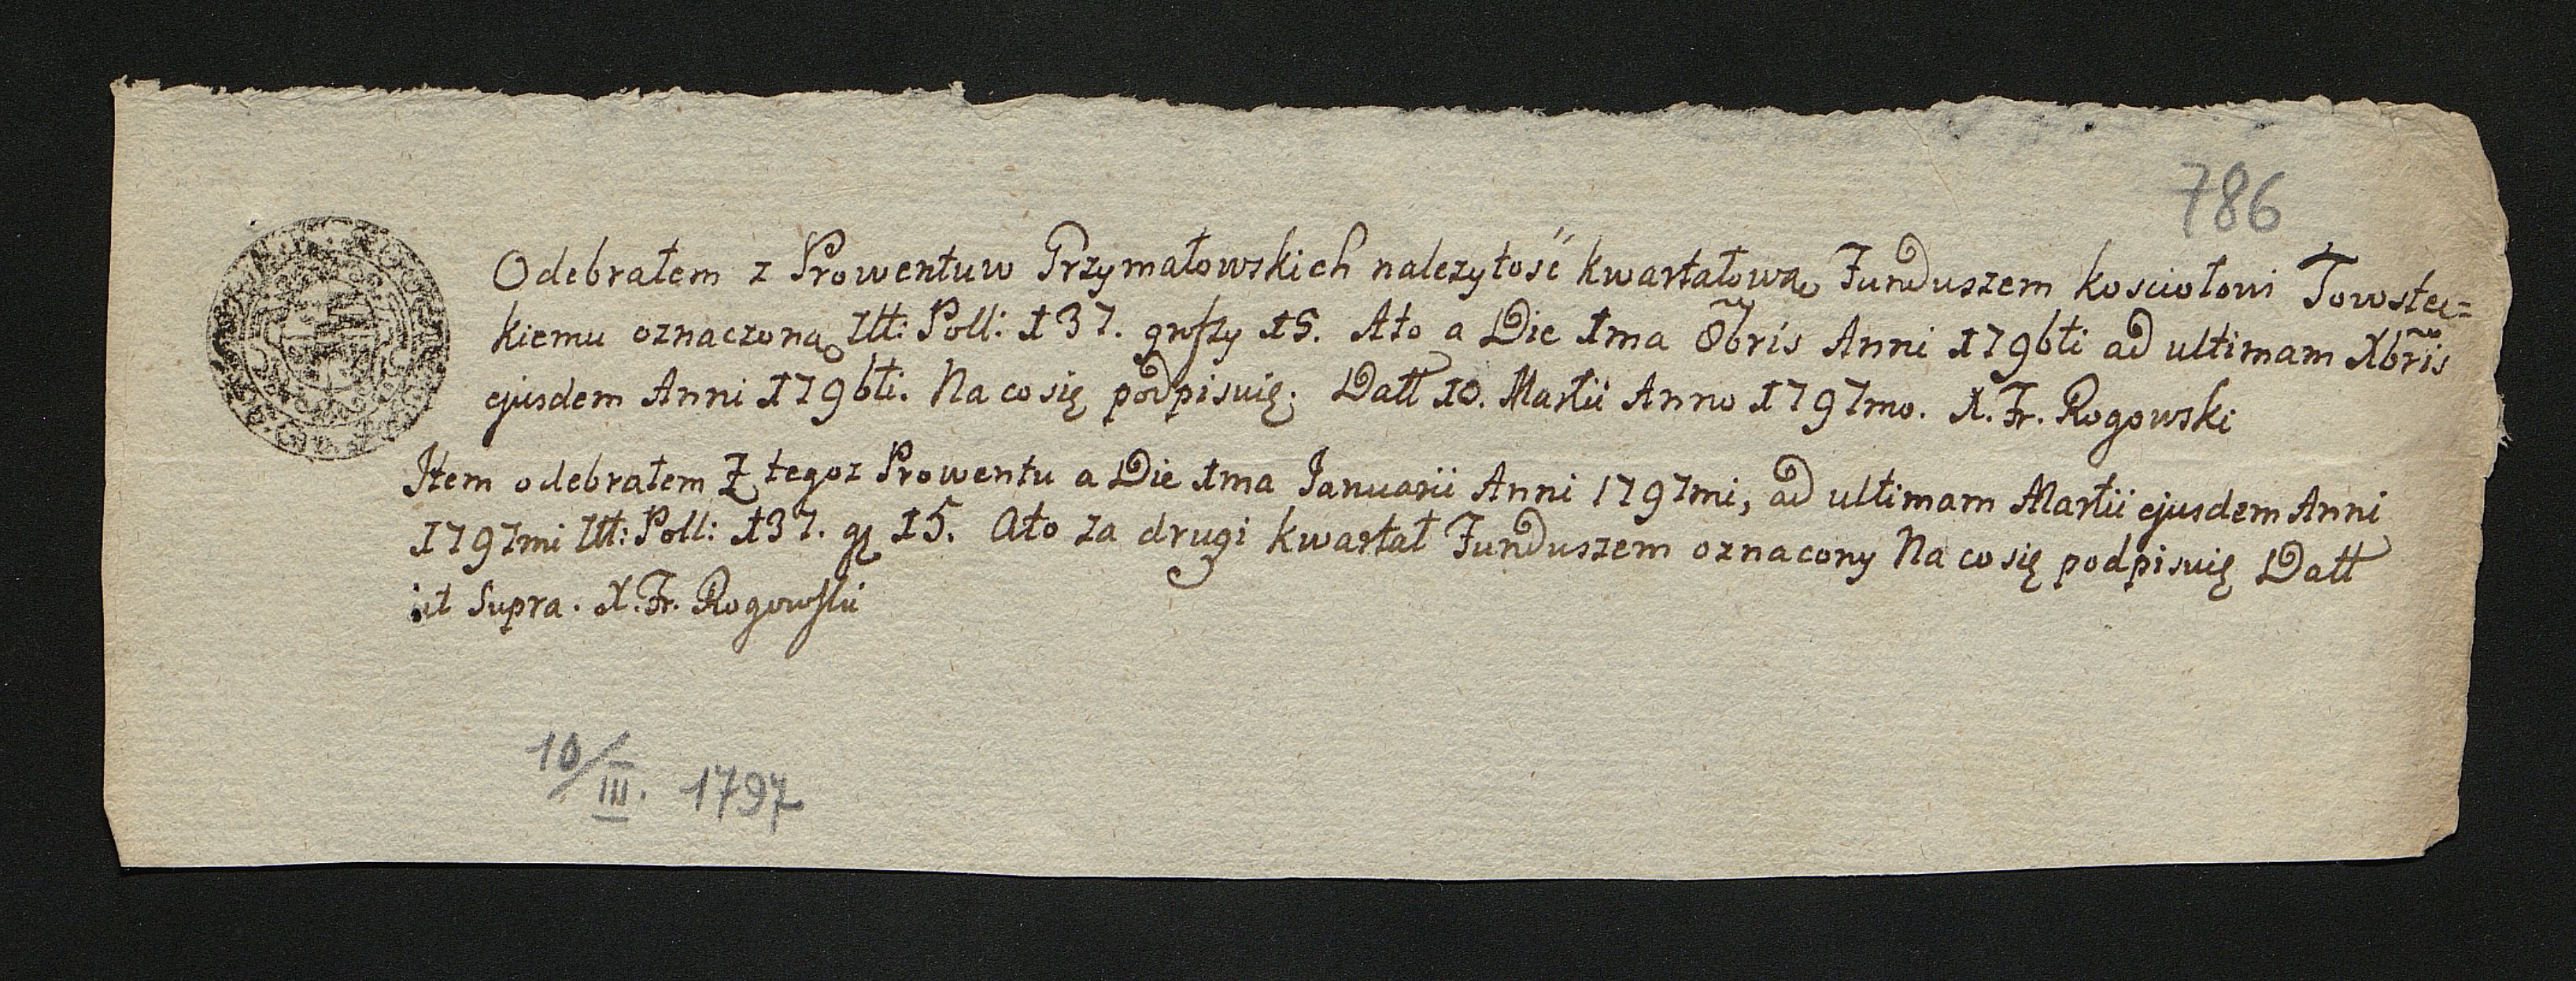 786
Odebrałem z Prowentuw Grzymałowskich nalezytość kwartałową Funduszem kosciołowi Towstec=
kiemu oznaczoną Złł: Poll: 137. groszy 15. Ato a Die 1ma 8bris Anni 1796ti ad ultimam Xbris
ejusdem Anni 1796ti. Na co się podpisuię. Datt 10. Martii Anno 1797mo. X. Fr. Rogowski
Item odebrałem Z tegoz Prowentu a Die 1ma Januarii Anni 1797mi, ad ultimam Martii ejusdem Anni
1797mi Złł: Poll: 137. gr 15. Ato za drugi kwartał Funduszem oznacony Na co się podpisuię Datt
ut Supra. X. Fr. Rogowski
10/III. 1797